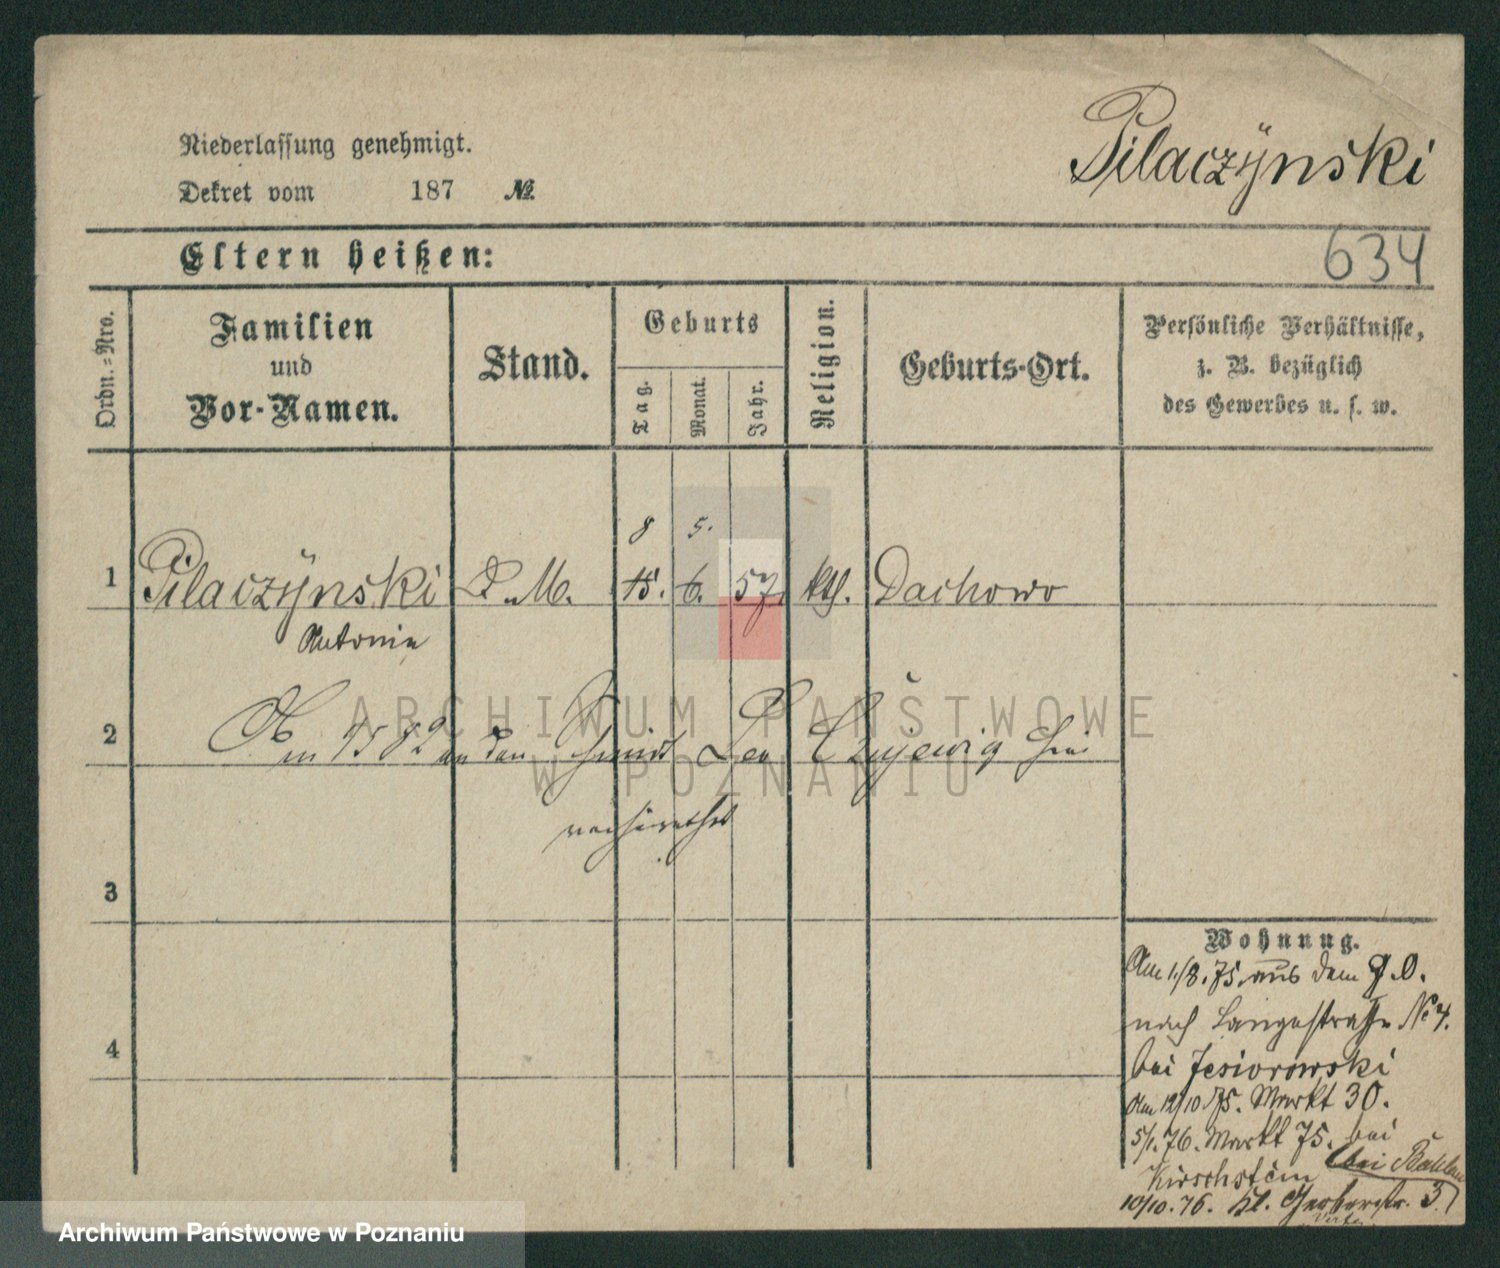 Pilaczÿnski
Niederlassung genehmigt.
Dekret vom 187 №
634
Eltern heißen:
Ordn.=Nro.
Familien
und
Vor-Namen.
Stand.
Geburts
Tag.
Monat.
Jahr.
Religion.
Geburts-Ort.
Persönliche Verhältnisse,
z. B. bezüglich
des Gewerbes u. s. w.
8 5.
1 Pilaczÿnski D. M. 15. 6. 57. kth. Dachowo
Antonie
2 an den Leo hier
verheirathet
3
4
Wohnung.
Am 1/8. 75. aus dem J. O.
nach Langestraße № 7.
bei Jesiorowski
Am 12/10 75. Markt 30.
5/1. 76. Markt 75. bei
Kirschstein bei
10/10. 76. Kl. Gerberstr. 3.
ARCHIWUM PAŃSTWOWE
W POZNANIU
Archiwum Państwowe w Poznaniu